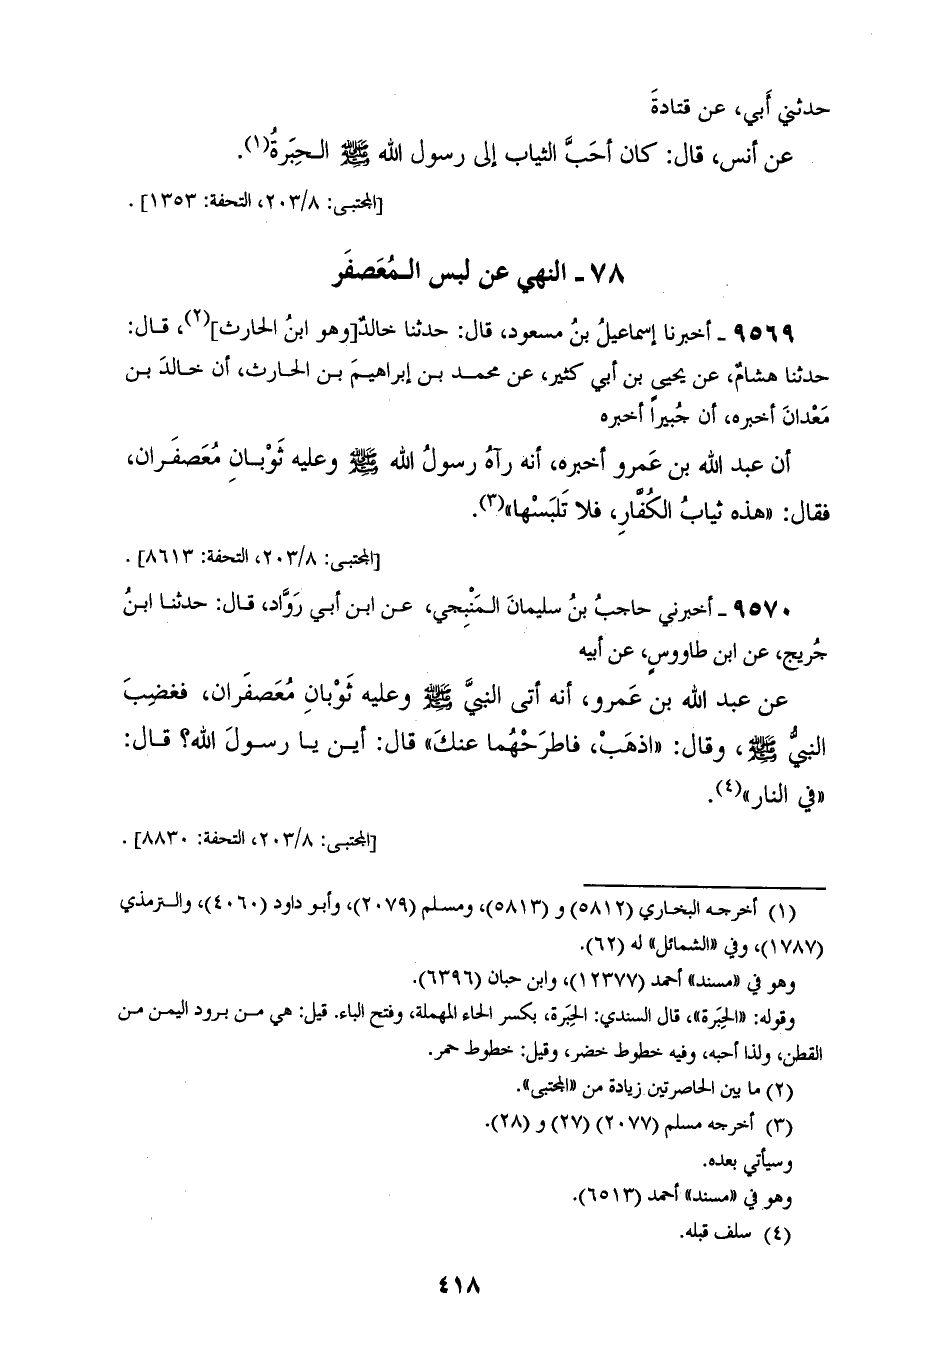 حدثني أَبي، عن قتادةَ
عن أنس، قال: كان أحَبَّ الثياب إلى رسول الله ﷺ الحِبَرةُ(١).
[المجتبى: ٢٠٣/٨، التحفة: ١٣٥٣].
٧٨ - النهي عن لبس المُعَصفَر
٩٥٦٩ - أخبرنا إسماعيلُ بنُ مسعود، قال: حدثنا خالدٌ[وهو ابنُ الحارث](٢)، قال:
حدثنا هشامٌ، عن يحيى بن أبي كثير، عن محمد بن إبراهيمَ بن الحارث، أن خالدَ بن
مَعْدانَ أخبره، أن جُبيراً أخبره
أن عبد الله بن عَمرو أخبره، أنه رآهُ رسولُ الله ﷺ وعليه ثَوْبانِ مُعَصفَران،
فقال: «هذه ثيابُ الكُفَّارِ، فلا تَلبَسْها»(٣).
[المجتبى: ٢٠٣/٨، التحفة: ٨٦١٣].
٩٥٧٠ - أخبرني حاجبُ بنُ سليمانَ المَنْبِجي، عن ابن أبي رَوَّاد، قال: حدثنا ابنُ
جُريج، عن ابن طاووسٍ، عن أبيه
عن عبد الله بن عَمرو، أنه أتى النبيَّ ﷺ وعليه ثَوْبانِ مُعَصفَران، فغضِبَ
النبيُّ ﷺ، وقال: «اذهَبْ، فاطرَحْهُما عنكَ» قال: أين يا رسولَ الله؟ قال:
«في النار»(٤).
[المجتبى: ٢٠٣/٨، التحفة: ٨٨٣٠].
(١) أخرجه البخاري (٥٨١٢) و (٥٨١٣)، ومسلم (٢٠٧٩)، وأبو داود (٤٠٦٠)، والترمذي
(١٧٨٧)، وفي «الشمائل» له (٦٢).
وهو في «مسند» أحمد (١٢٣٧٧)، وابن حبان (٦٣٩٦).
وقوله: «الحِبَرة»، قال السندي: الحِبَرة، بكسر الحاء المهملة، وفتح الباء. قيل: هي من برود اليمن من
القطن، ولذا أحبه، وفيه خطوط خضر، وقيل: خطوط حمر.
(٢) ما بين الحاصرتين زيادة من «المجتبى».
(٣) أخرجه مسلم (٢٠٧٧) (٢٧) و (٢٨).
وسيأتي بعده.
وهو في «مسند» أحمد (٦٥١٣).
(٤) سلف قبله.
٤١٨